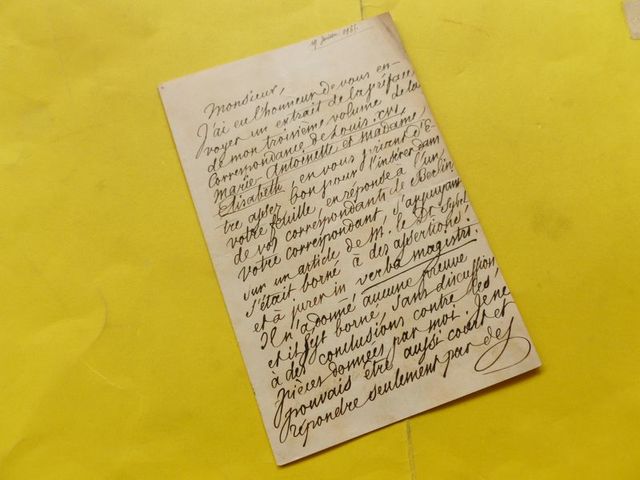 Monsieur,
J'ai eu l'honneur de vous en-
voyer un extrait de la préface
de mon troisième volume de la
Correspondance de Louis XVI,
Marie-Antoinette et Madame
Elisabeth, en vous priant d'ê-
tre assez bon pour l'insérer dans
votre feuille, en réponse à l'un
de vos correspondants de Berlin
votre correspondant, s'appuyant
sur un article de M. le Dr Sybel
s'était borné à des assertions
et à jurer in verba magistri.
Il n'a donné aucune preuve
et s'est borné, sans discussion
à des conclusions contre les
pièces données par moi. Je ne
pouvais être aussi court et
répondre seulement par des